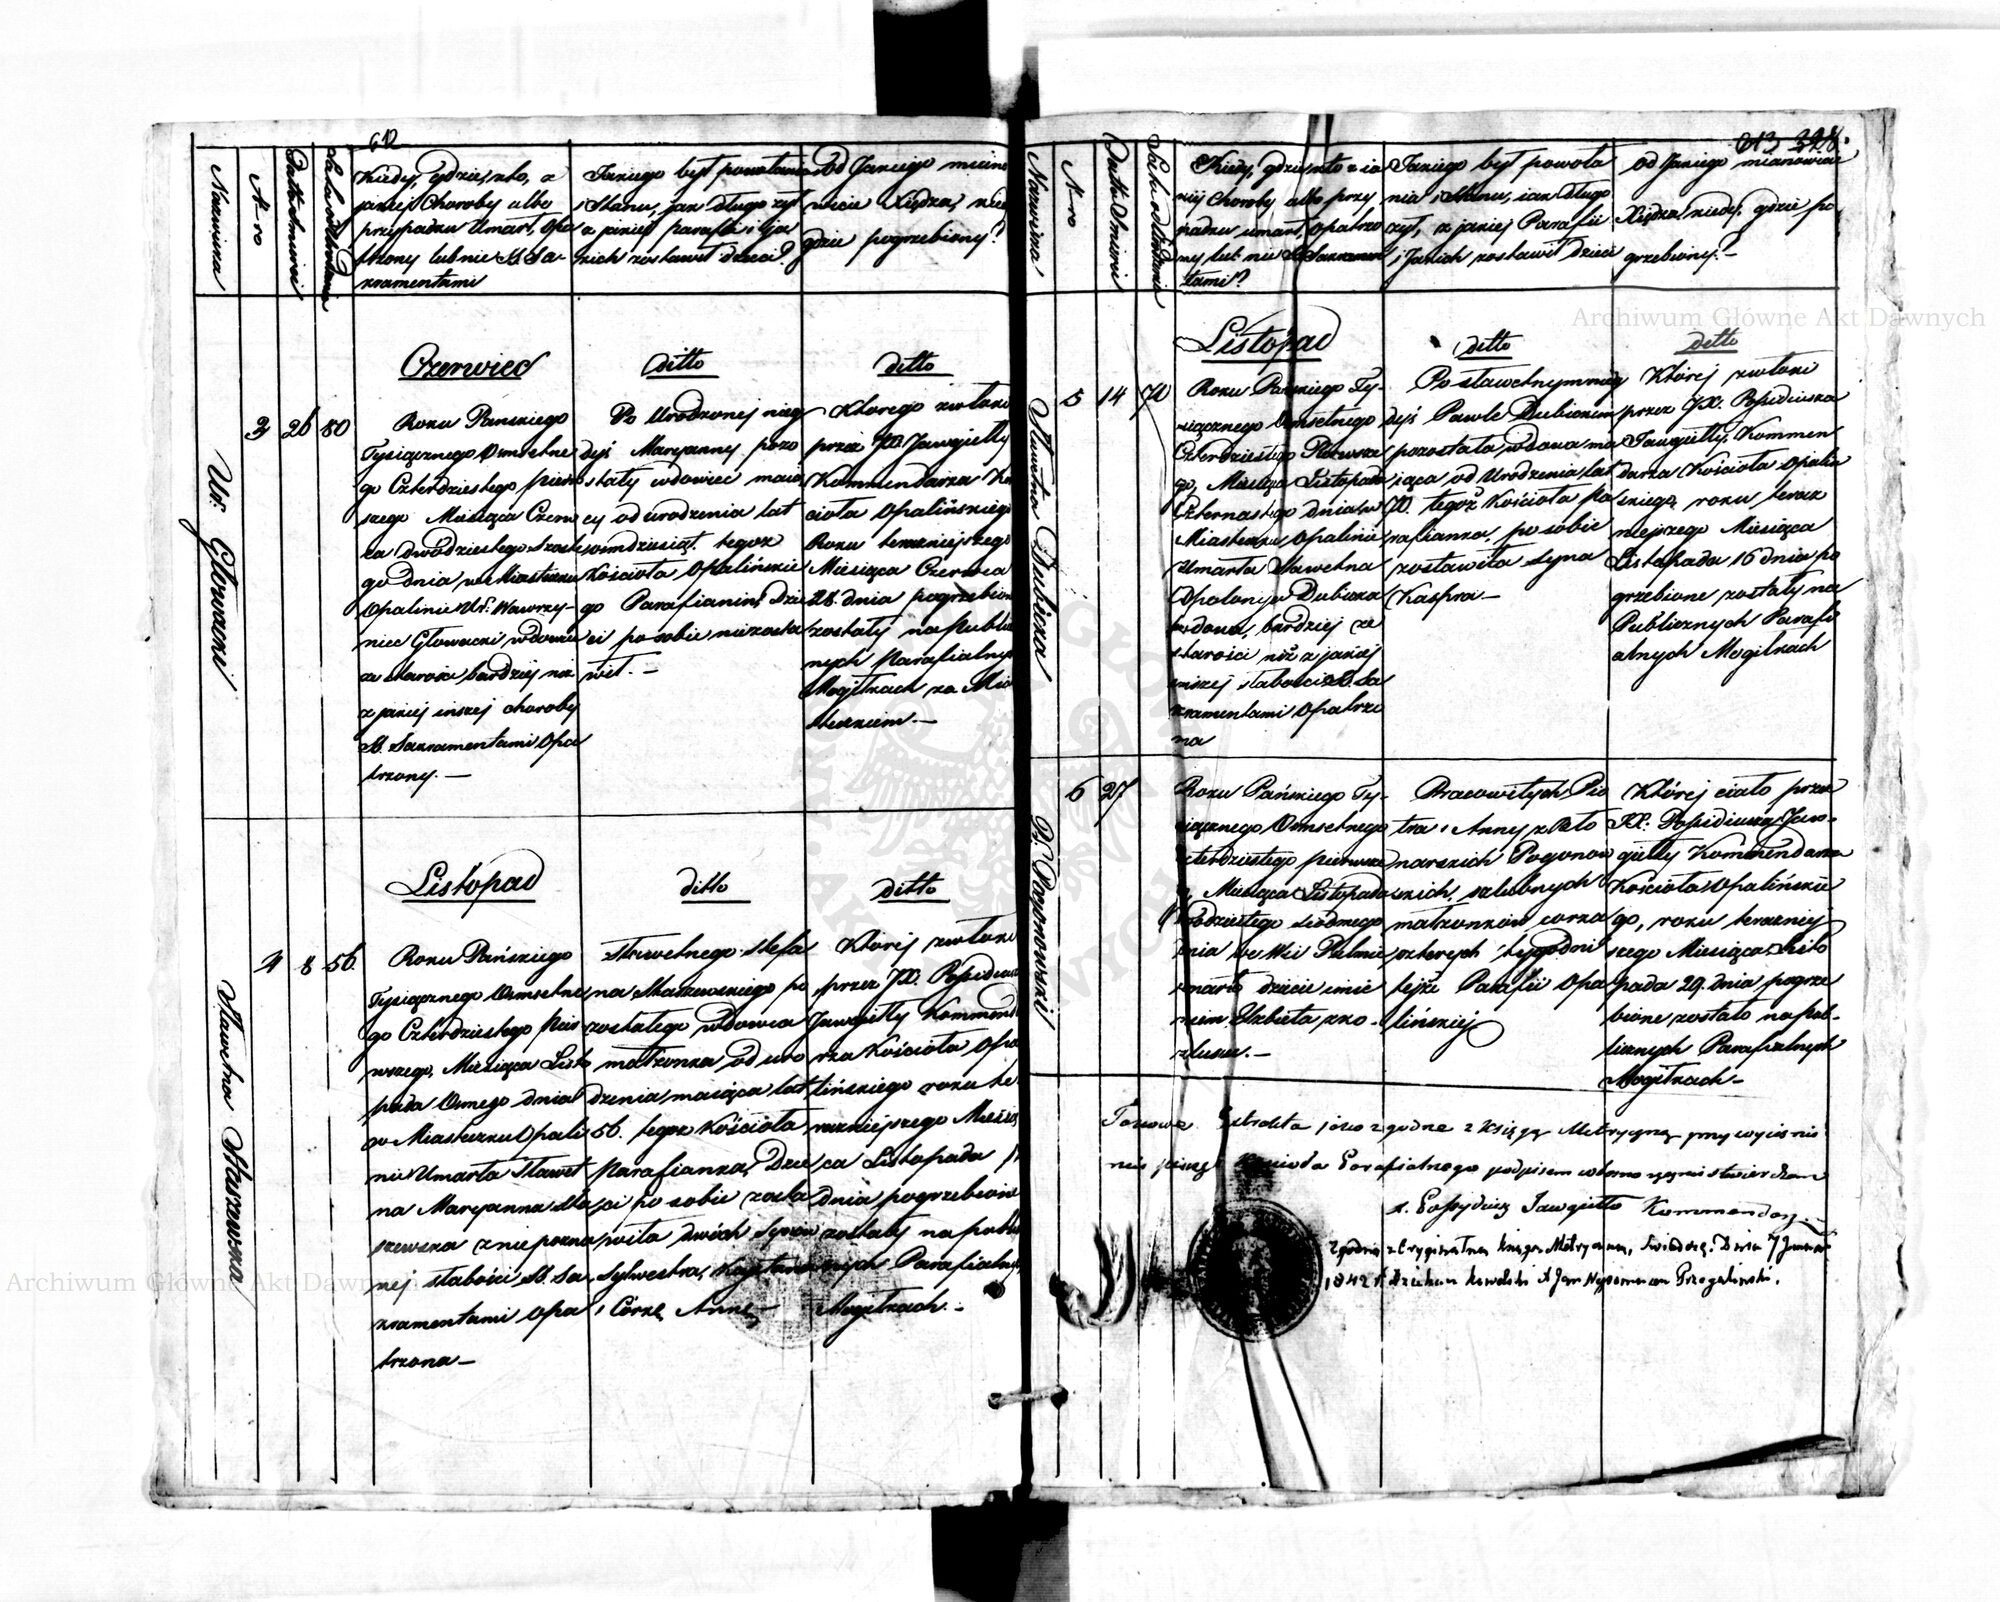 612
Nazwiska
N-ro
Data śmierci
Kiedy, gdzie, kto, z
jakiej Choroby albo
przypadku Umarł, Opa
trzony lub nie S. Sa-
kramentami
Jakiego był powołania
i Stanu, jak długo żył
z jakiej parafii i ja
kich zostawił dzieci?
Od Jakiego miano
wicie Xiędza, kiedy
gdzie pogrzebiony?
Czerwiec
ditto
ditto
Ur: Głowacki
3
26
80
Roku Pańskiego
Tysiącznego Osmsetne
go Czterdziestego pierw
szego Miesiąca Czerw
ca dwódziestego szóste
go dnia, w Miasteczku
Opalinie Ur: Wawrzy-
niec Głowacki wdowiec
ze starości bardziej niż
z jakiej inszej choroby
S. Sakramentami Opa
trzony. —
Po Urodzonej nieg
dyś Maryanny pozo
stały wdowiec maią
cy od urodzenia lat
osmdziesiąt tegoż
Kościoła Opalińskie
go Parafianin, Dzie
ci po sobie niezosta
wił. —
Którego zwłoki
przez JX. Jawgiełły
Kommendarza Ko
ścioła Opalińskiego
Roku teraznieyszego
Miesiąca Czerwca
28. dnia pogrzebion
zostały na publi
nych Parafialny
Mogiłkach za Mia
steczkiem. —
Listopad
ditto
ditto
Sławetna Staszewska
4
8
56.
Roku Pańskiego
Tysiącznego Osmsetne
go Czterdziestego Pier
wszego, Miesiąca Listo
pada Osmego dnia
w Miasteczku Opali
nie Umarła Sławet
na Maryanna Sta
szewska z niepozna
nej słabości S. Sa-
kramentami Opa
trzona —
Sławetnego Stefa
na Staszewskiego po
zostałego wdowca
małżonka od uro
dzenia maiąca lat
56. tegoż Kościoła
Parafianka, Dzie
ci po sobie zosta
wiła dwóch Synów
Sylwestra, Kajetana
i Córkę Annę —
Której zwłoki
przez JX. Possidiusza
Jawgiełły Kommend
rza Kościoła Opa
lińskiego roku te
razniejszego Miesią
ca Listopada
dnia pogrzebione
zostały na publ
icznych Parafialny
Mogiłkach. —
613 328.
Nazwiska
N-ro
Data śmierci
Kiedy, gdzie, kto z ia
kiej Choroby albo przy
padku umarł, opatrzo
ny lub nie S. Sakramen
tami?
Jakiego był powoła
nia i Stanu, iak długo
żył, z jakiej Parafii
i Jakich zostawił dzieci
Od Jakiego mianowicie
Xiędza, kiedy, gdzie po
grzebiony? —
Listopad
ditto
ditto
Sławetna Dubicka
5
14
70
Roku Pańskiego Ty-
siącznego Osmsetnego
Czterdziestego Pierwsze
go, Miesiąca Listopada
Czternastego dnia w
Miasteczku Opalinie
Umarła Sławetna
Apolonya Dubicka
wdowa, bardziej ze
starości niż z jakiej
inszej słabości S. Sa
kramentami Opatrzo
na
Po sławetnym nieg
dyś Pawle Dubickim
pozostała wdowa ma
iąca od Urodzenia lat
70. tegoż Kościoła Pa
rafianka, po sobie
zostawiła Syna
Kaspra. —
Której zwłoki
przez JX. Possidiusza
Jawgiełły, Kommen
darza Kościoła Opaliń
skiego, roku teraz
niejszego Miesiąca
Listopada 16 dnia po
grzebione zostały na
Publicznych Parafi
alnych Mogiłkach
Pogonowski
6
27
Roku Pańskiego Ty-
siącznego Osmsetnego
Czterdziestego pierwsze
go, Miesiąca Listopada
dwódziestego siódmego
dnia we Wsi
umarło dziecie imie
niem Elżbieta z ko-
kluszu. —
Pracowitych Pio
tra i Anny z
Pogonow
skich, szlubnych
małżonków córka
czterech tygodni
tejże Parafii Opa
lińskiej
Której ciało przez
JX: Possidiusza Jaw-
giełły Kommendarza
Kościoła Opalińskie
go, roku teraźniej
szego Miesiąca Listo
pada 29. dnia pogrze
bione zostało na pub-
licznych Parafialnych
Mogiłkach —
Takowe Extrakta jako zgodne z Księgą Metryczną przy wyciśnie
niu pieczęci Kościoła Parafialnego podpisem własno ręcznie stwierdzam
X. Possydiusz Jawgiełło Kommendarz.
Zgodno z Oryginalną księgą Metryczną, świadczę. Dnia 7 Januar
1842 r. Dziekan X Jan Nepomucen
Archiwum Główne Akt Dawnych
Archiwum Główne Akt Dawnych